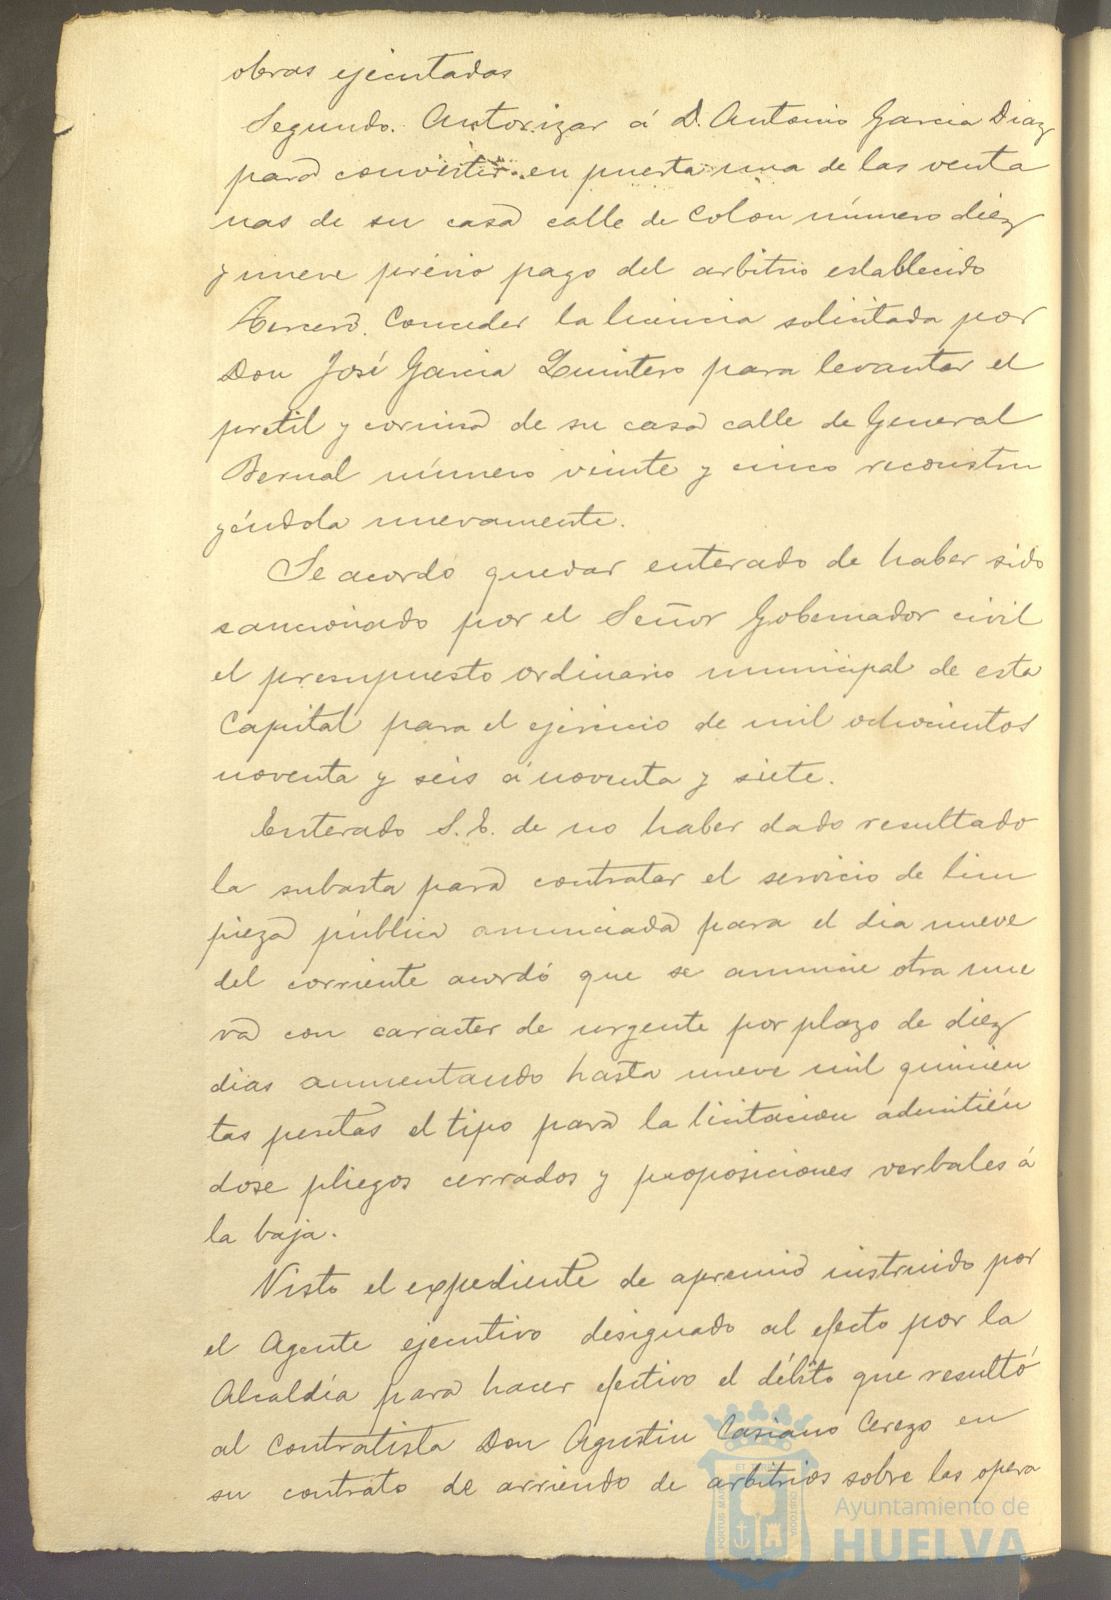 obras ejecutadas
Segundo. Autorizar á D. Antonio Garcia Diaz
para convertir en puerta una de las venta
nas de su casa calle de Colon número diez
y nueve prévio pago del arbitrio establecido
Tercero. Conceder la licencia solicitada por
Don José Garcia Quintero para levantar el
pretil y cornisa de su casa calle de General
Bernal número veinte y cinco reconstru
yéndola nuevamente.
Se acordó quedar enterado de haber sido
sancionado por el Señor Gobernador civil
el presupuesto ordinario municipal de esta
Capital para el ejercicio de mil ochocientos
noventa y seis á noventa y siete.
Enterado S.E. de no haber dado resultado
la subasta para contratar el servicio de lim
pieza pública anunciada para el dia nueve
del corriente acordó que se anuncie otra nue
va con caracter de urgente por plazo de diez
dias aumentando hasta nueve mil quinien
tas pesetas el tipo para la licitacion admitién
dose pliegos cerrados y proposiciones verbales á
la baja.
Visto el expediente de apremio instruido por
el Agente ejecutivo designado al efecto por la
Alcaldía para hacer efectivo el débito que resultó
al contratista Don Agustin Casiano Cerezo en
su contrato de arriendo de arbitrios sobre las opera
Ayuntamiento de
HUELVA